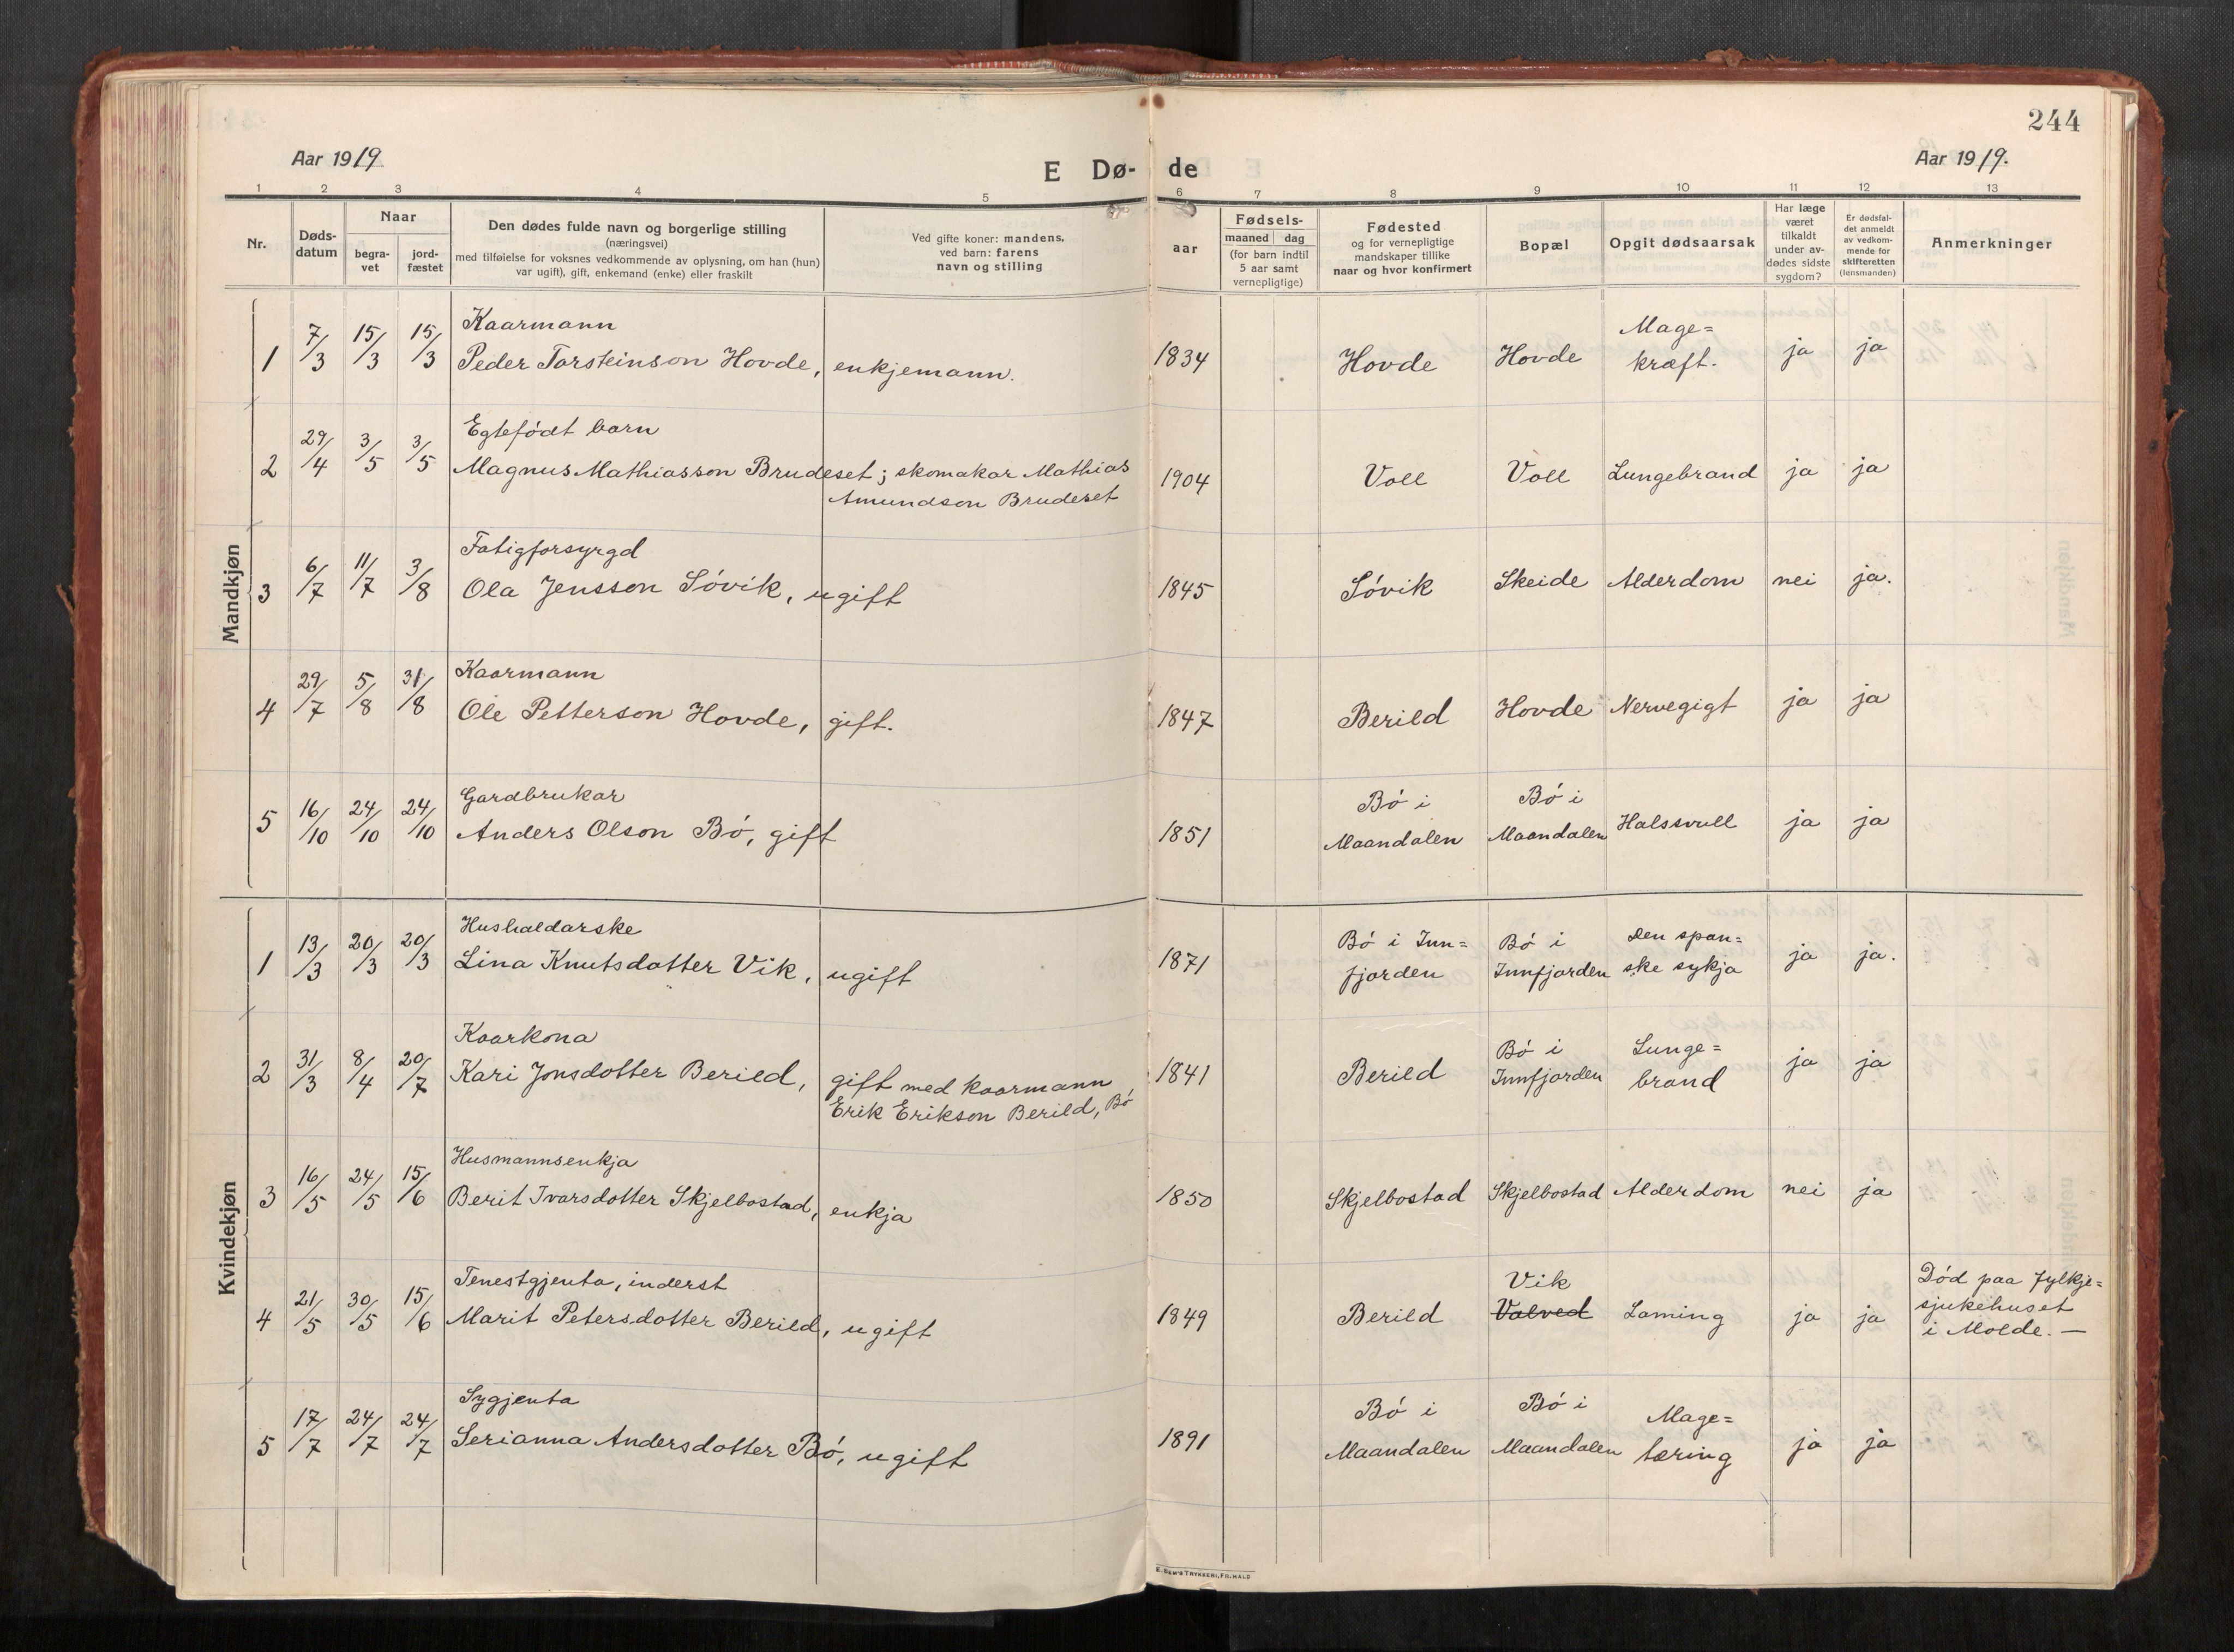 244
Aar 1919
E Dø- de
Aar 1919.
1 2 3 4 5 6 7 8 9 10 11 12 13
Nr.
Døds-
datum
Naar
begra-
vet
jord-
fæstet
Den dødes fulde navn og borgerlige stilling
(næringsvei)
med tilføielse for voksnes vedkommende av oplysning, om han (hun)
var ugift), gift, enkemand (enke) eller fraskilt
Ved gifte koner: mandens,
ved barn: farens
navn og stilling
aar
Fødsels-
maaned dag
(for barn indtil
5 aar samt
vernepligtige)
Fødested
og for vernepligtige
mandskaper tillike
naar og hvor konfirmert
Bopæl
Opgit dødsaarsak
Har læge
været
tilkaldt
under av-
dødes sidste
sygdom?
Er dødsfal-
det anmeldt
av vedkom-
mende for
skifteretten
(lensmanden)
Anmerkninger
Mandkjøn
Kaarmann
1 7/3 15/3 15/3 Peder Torsteinson Hovde, enkjemann. 1834 Hovde Hovde Mage=
kræft. ja ja
Egtefødt barn
2 29/4 3/5 3/5 Magnus Mathiasson Brudeset; skomakar Mathias
Amundson Brudeset 1904 Voll Voll Lungebrand ja ja
Fatigforsyrgd
3 6/7 11/7 3/8 Ola Jensson Søvik, ugift 1845 Søvik Skeide Alderdom nei ja.
Kaarmann
4 29/7 5/8 31/8 Ole Petterson Hovde, gift. 1847 Berild Hovde Nervegigt ja ja
Gardbrukar
5 16/10 24/10 24/10 Anders Olson Bø, gift 1851 Bø i
Maandalen Bø i
Maandalen Halssvull ja ja
Kvindekjøn
Hushaldarske
1 13/3 20/3 20/3 Lina Knutsdotter Vik, ugift 1871 Bø i Inn=
fjorden Bø i
Innfjorden Den span=
ske sykja ja ja.
Kaarkona
2 31/3 8/4 20/7 Kari Jonsdotter Berild, gift med kaarmann
Erik Erikson Berild, Bø 1841 Berild Bø i
Innfjorden Lunge=
brand ja ja
Husmannsenkja
3 16/5 24/5 15/6 Berit Ivarsdotter Skjelbostad, enkja 1850 Skjelbostad Skjelbostad Alderdom nei ja
Tenestgjenta, inderst
4 21/5 30/5 15/6 Marit Petersdotter Berild, ugift 1849 Berild Vik
Volved Laming ja ja Død paa fylkje=
sjukehuset
i Molde. —
Sygjenta
5 17/7 24/7 24/7 Serianna Andersdotter Bø, ugift 1891 Bø i
Maandalen Bø i
Maandalen Mage=
tæring ja ja
E. SEM'S TRYKKERI, FR.HALD